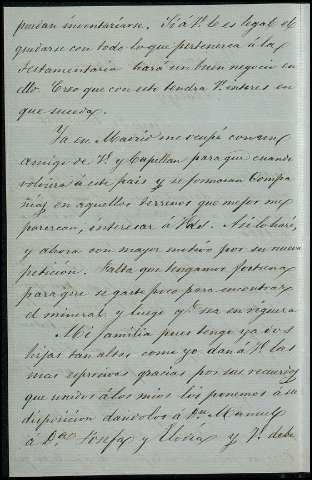 puedan inventariarse. Si á V. le es legal el
quedarse con todo lo que pertenezca á la
testamentaria hará un buen negocio en
ello. Creo que con esto tendra V. interes en
que suceda.
Ya en Madrid me ocupé con un
amigo de V. y Capellan para que cuando
volviera á este pais y se formaran Compa
ñias en aquellos terrenos que mejor me
parezcan, interesar á Vds. Asi lo haré,
y ahora con mayor motivo por su nueva
peticion. Falta que tengamos fortuna
para que se gaste poco para encontrar
el mineral y luego qe. sea en riquera
Mi familia pues tengo ya dos
hijas tan altas como yo dan á V. las
mas espresivas gracias por sus recuerdos
que unidos á los mios los ponemos á su
disposicion dandolos á Dn. Manuel
á Da. Josefa y y V. debe